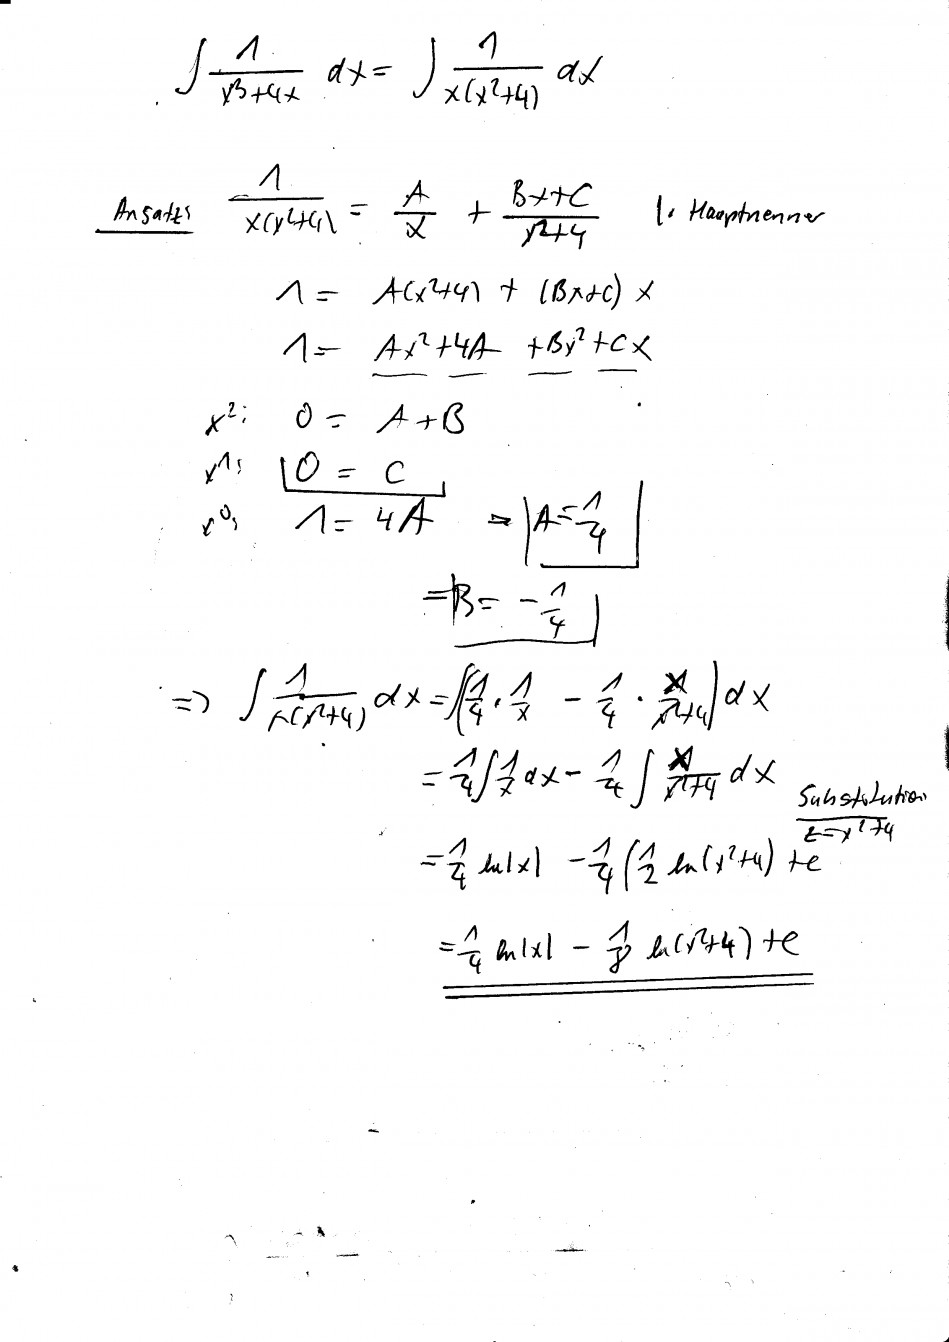 ∫ 1/(x³+4x) dx = ∫ 1/(x(x²+4)) dx
Ansatz: 1/(x(x²+4)) = A/x + (Bx+C)/(x²+4) |· Hauptnenner
1 = A(x²+4) + (Bx+C) x
1 = Ax²+4A +Bx²+Cx
x²: 0 = A+B
x¹: 0 = C
x⁰: 1 = 4A ⇒ A = 1/4
⇒ B = -1/4
=> ∫ 1/(x(x²+4)) dx = ∫(1/4 · 1/x - 1/4 · x/(x²+4)) dx
= 1/4 ∫ 1/x dx - 1/4 ∫ x/(x²+4) dx
Substitution
z=x²+4
= 1/4 ln|x| - 1/4 (1/2 ln(x²+4) +c
= 1/4 ln|x| - 1/8 ln(x²+4) +c